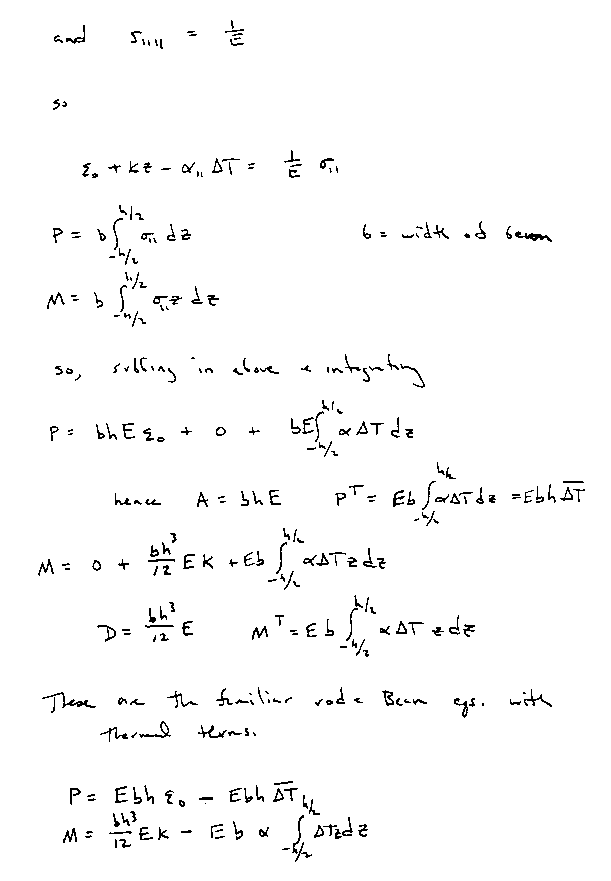 and S₁₁₁₁ = 1/E
so
ε₀ + κz - α₁₁ ΔT = 1/E σ₁₁
P = b∫_{-h/2}^{h/2} σ₁₁ dz b = width of beam
M = b ∫_{-h/2}^{h/2} σ₁₁z dz
so, subbing in above & integrating
P = bhE ε₀ + 0 + bE∫_{-h/2}^{h/2} αΔT dz
hence A = bhE P^T = Eb ∫_{-h/2}^{h/2} αΔT dz = Ebh \overline{ΔT}
M = 0 + bh³/12 E κ + Eb ∫_{-h/2}^{h/2} αΔT z dz
D = bh³/12 E M^T = E b ∫_{-h/2}^{h/2} αΔT z dz
These are the familiar rod & Beam eqs. with
thermal terms.
P = Ebh ε₀ - Ebh \overline{ΔT}
M = bh³/12 E κ - E b α ∫_{-h/2}^{h/2} ΔTz dz